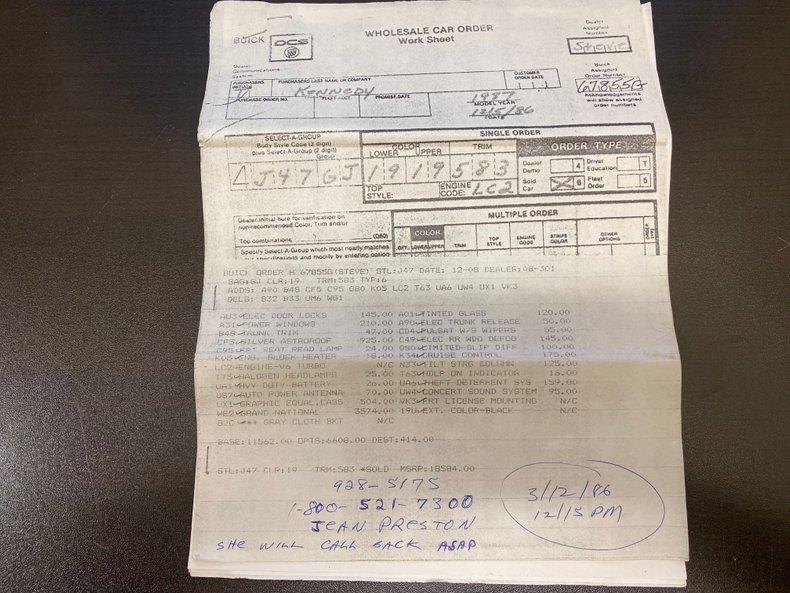 BUICK DCS
WHOLESALE CAR ORDER
Work Sheet
Dealer Assigned Number
STEVE
Dealer
Communications
System
PURCHASERS LAST NAME OR COMPANY
KENNEDY
CUSTOMER ORDER DATE
Buick Assigned Order Number
67855G
Acknowledgements will show assigned order numbers
PURCHASE ORDER NO. PROMISE DATE
1987
MODEL YEAR
12/5/86
DATE
SELECT-A-GROUP
Body Style Code (3 digit)
plus Select-A-Group (2 digit)
Group
SINGLE ORDER
COLOR
LOWER UPPER TRIM
ORDER TYPE
J47 GJ 19 19 583
Dealer Demo 4 Driver Education 7
TOP STYLE: ENGINE CODE: LC2
Sold Car X 6 Fleet Order 5
Dealer initial here for verification on
non-recommended Color, Trim and/or
Top combinations. (060)
Specify Select-A-Group which most nearly matches
MULTIPLE ORDER
COLOR
QTY. LOWER/UPPER TRIM TOP STYLE ENGINE CODE STRIPE COLOR OTHER OPTIONS ORDER TYPE
BUICK ORDER # 67855G(STEVE) STL:J47 DATE: 12-08 DEALER:08-301
SAG:GJ CLR:19 TRM:583 TYP:6
ADDS: A90 B48 CF5 C95 G80 K05 LC2 T63 UA6 UW4 UX1 VK3
DELS: B32 B33 UM6 WG1
AU3 ELEC DOOR LOCKS 145.00 A01 TINTED GLASS 120.00
A31 POWER WINDOWS 210.00 A90 ELEC TRUNK RELEASE 50.00
B48 TRUNK TRIM 47.00 CD4 PULSAT W/S WIPERS 55.00
CF5 SILVER ASTROROOF 925.00 C49 ELEC RR WDO DEFOG 145.00
C95 FRT SEAT READ LAMP 24.00 G80 LIMITED-SLIP DIFF 100.00
K05 ENG. BLOCK HEATER 18.00 K34 CRUISE CONTROL 175.00
LC2 ENGINE-V6 TURBO N/C N33 TILT STRG COLUMN 125.00
TT5 HALOGEN HEADLAMPS 25.00 T63 HDLP ON INDICATOR 16.00
UA1 HVY DUTY BATTERY 26.00 UA6 THEFT DETERRENT SYS 159.00
U87 AUTO POWER ANTENNA 70.00 UW4 CONCERT SOUND SYSTEM 95.00
UX1 GRAPHIC EQUAL,CASS 504.00 VK3 FRT LICENSE MOUNTING N/C
WE2 GRAND NATIONAL 3574.00 19U EXT. COLOR-BLACK N/C
B2C *** GRAY CLOTH BKT N/C
BASE:11562.00 OPTS:6608.00 DEST:414.00
STL:J47 CLR:19 TRM:583 *SOLD MSRP:18584.00
928-5175
1-800-521-7300
JEAN PRESTON
SHE WILL CALL BACK ASAP
3/12/86
12/15 PM